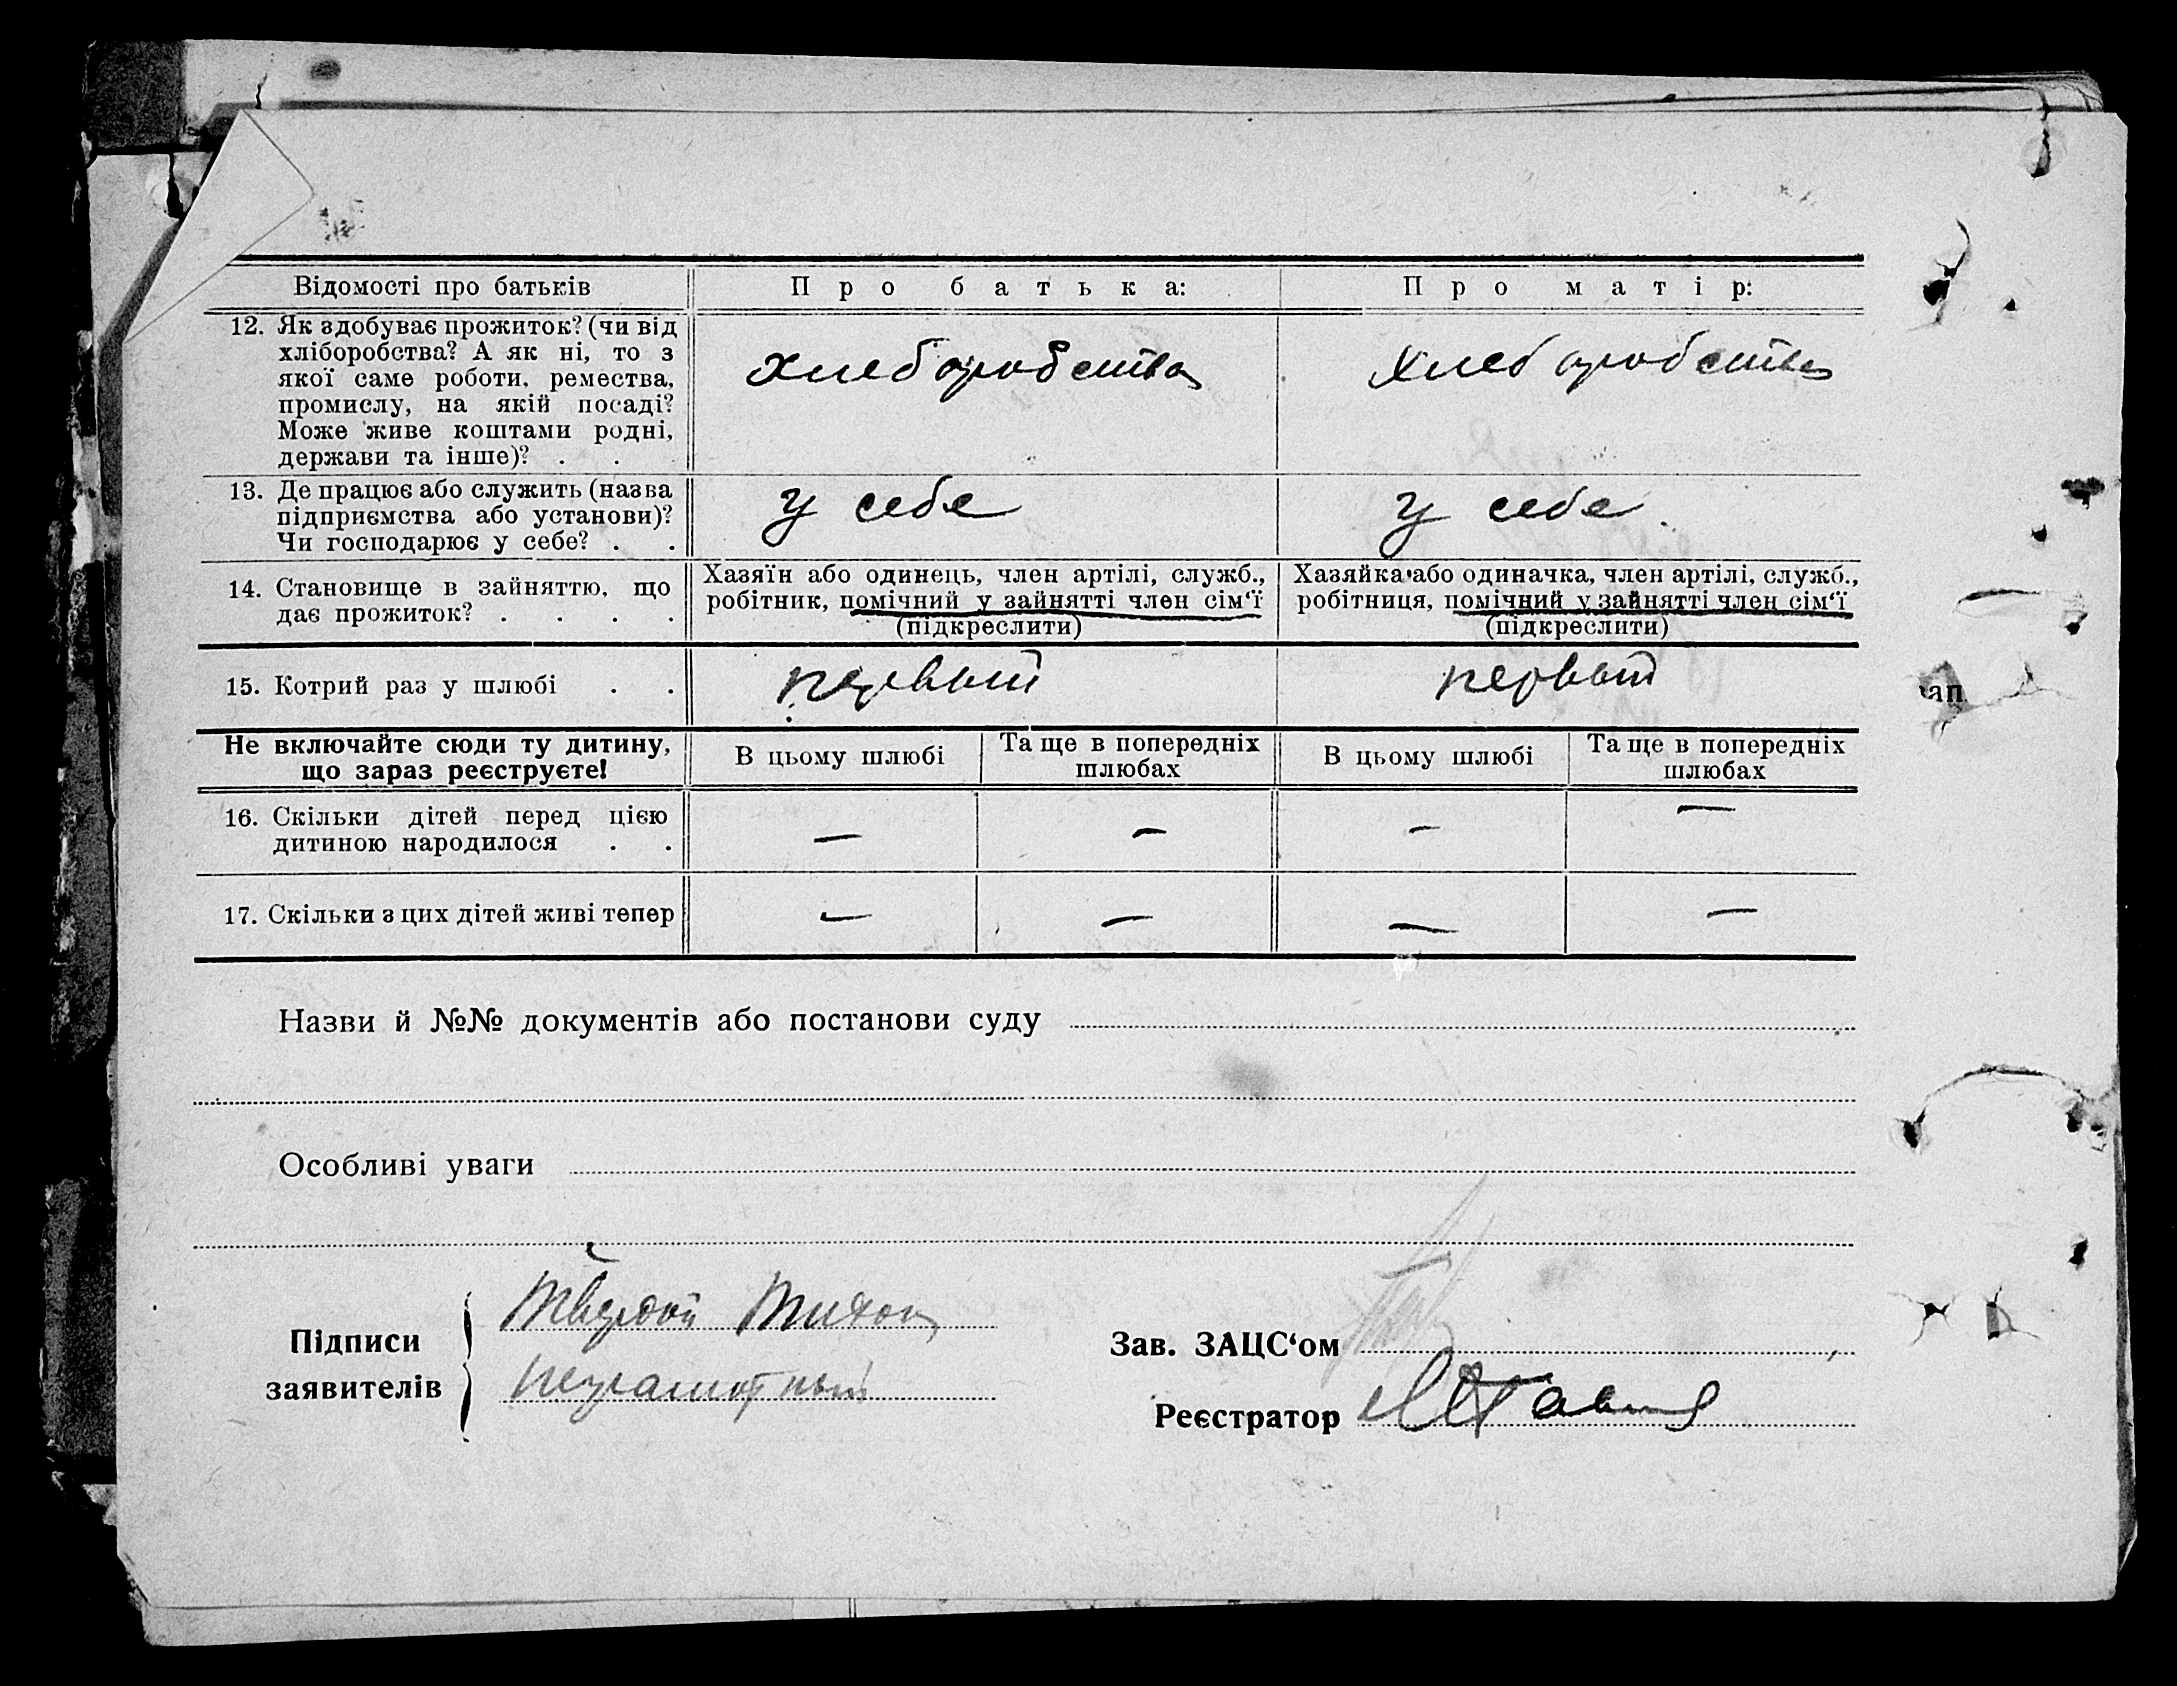 Відомості про батьків
Про батька:
Про матір:
12. Як здобуває прожиток? (чи від
хліборобства? А як ні, то з
якої саме роботи, ремества,
промислу, на якій посаді?
Може живе коштами родні,
держави та інше)? . .
хлеборобства
хлеборобства
13. Де працює або служить (назва
підприємства або установи)?
Чи господарює у себе? . .
у себе
у себе
14. Становище в зайняттю, що
дає прожиток? . . . .
Хазяїн або одинець, член артілі, служб.,
робітник, помічний у зайнятті член сім‘ї
(підкреслити)
Хазяйка або одиначка, член артілі, служб.,
робітниця, помічний у зайнятті член сім‘ї
(підкреслити)
15. Котрий раз у шлюбі . .
первый
первый
Не включайте сюди ту дитину,
що зараз реєструєте!
В цьому шлюбі
Та ще в попередніх
шлюбах
В цьому шлюбі
Та ще в попередніх
шлюбах
16. Скільки дітей перед цією
дитиною народилося . .
— — — —
17. Скільки з цих дітей живі тепер
— — — —
Назви й №№ документів або постанови суду
Особливі уваги
Підписи
заявителів
Твердой Тихон
неграмотный
Зав. ЗАЦС‘ом
Реєстратор
ап